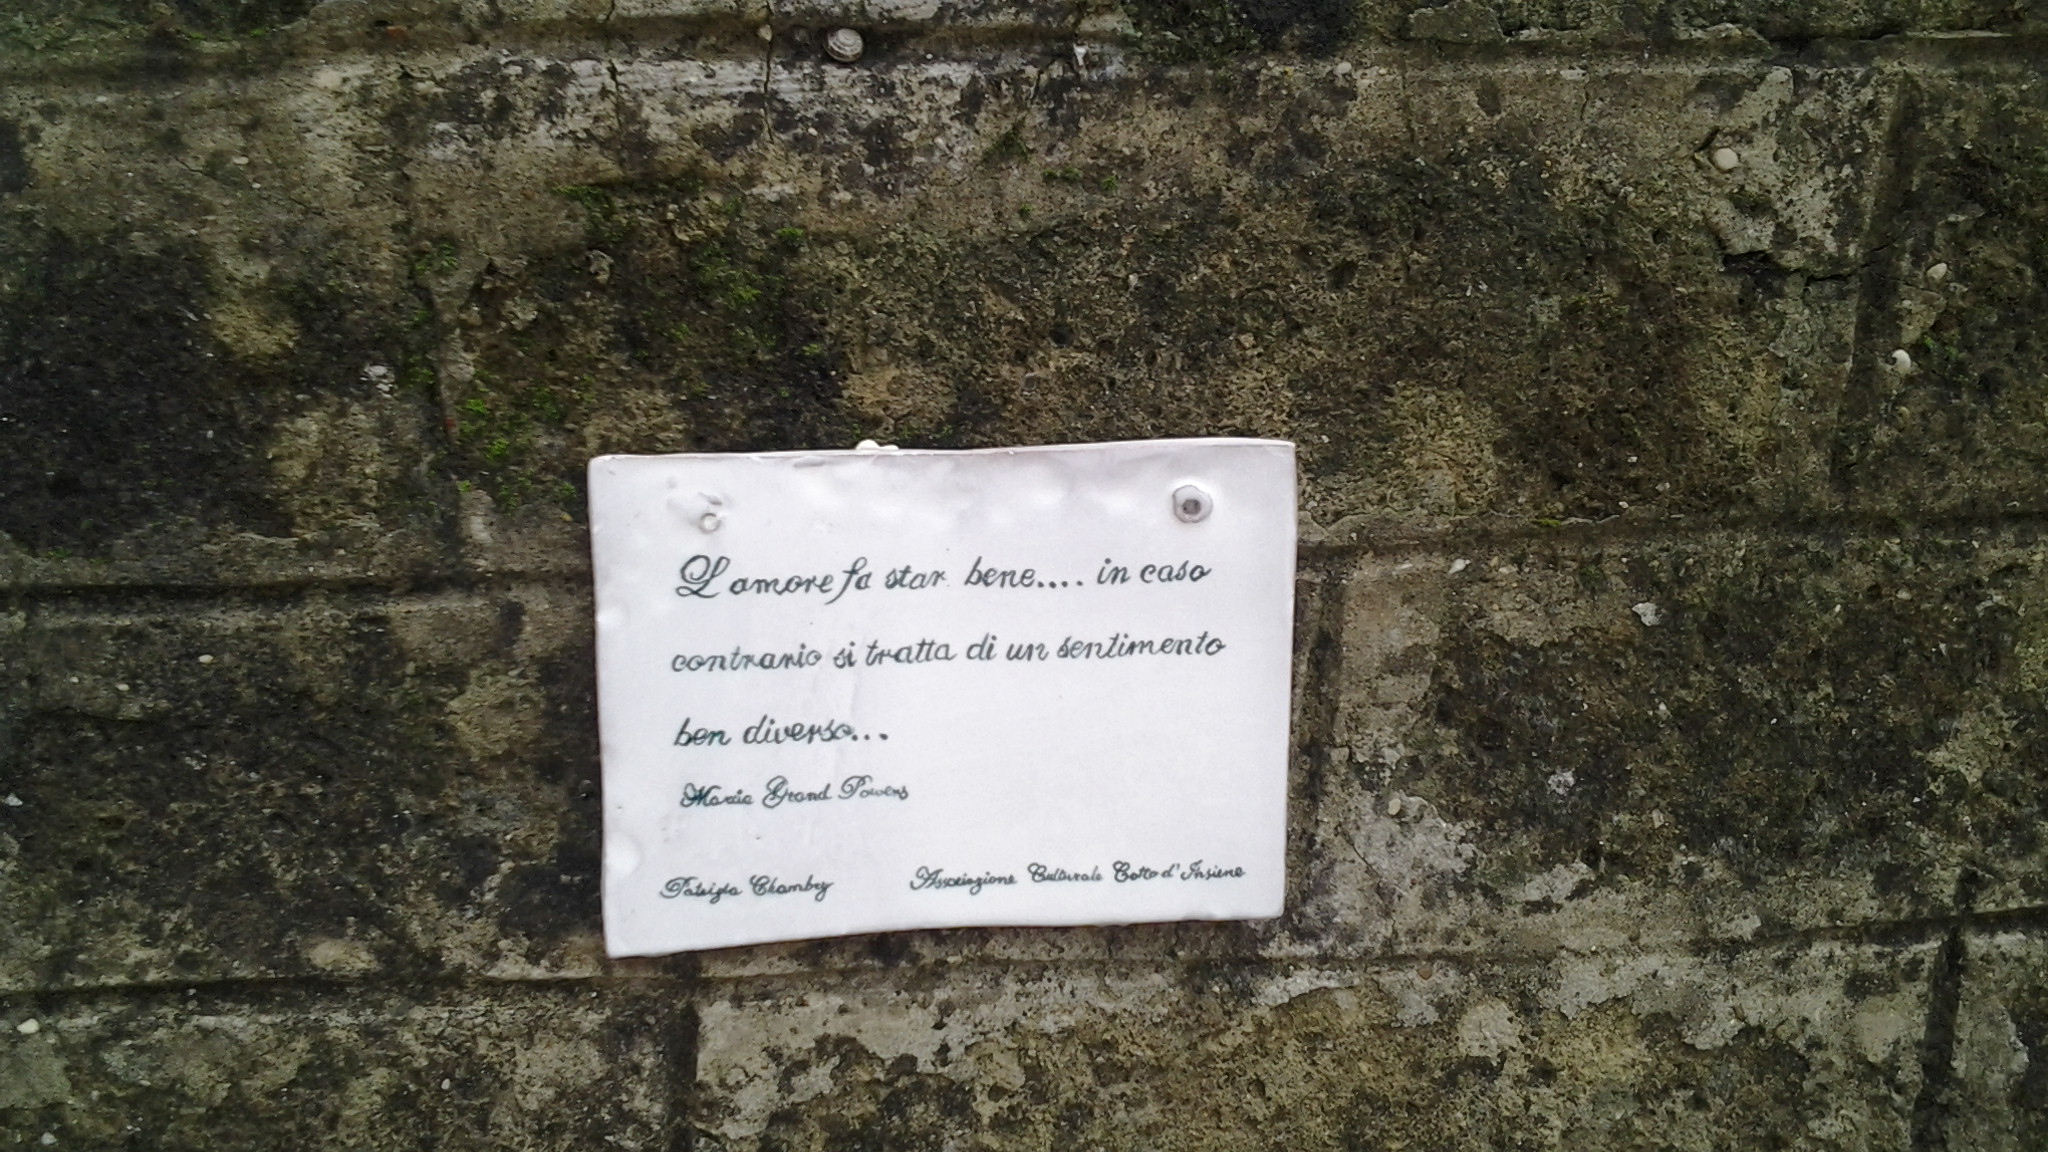 L'amore fa star bene.... in caso
contrario si tratta di un sentimento
ben diverso...
Maria Grand Powers
Patrizia Chambry
Associazione Culturale Cotto d'Insieme